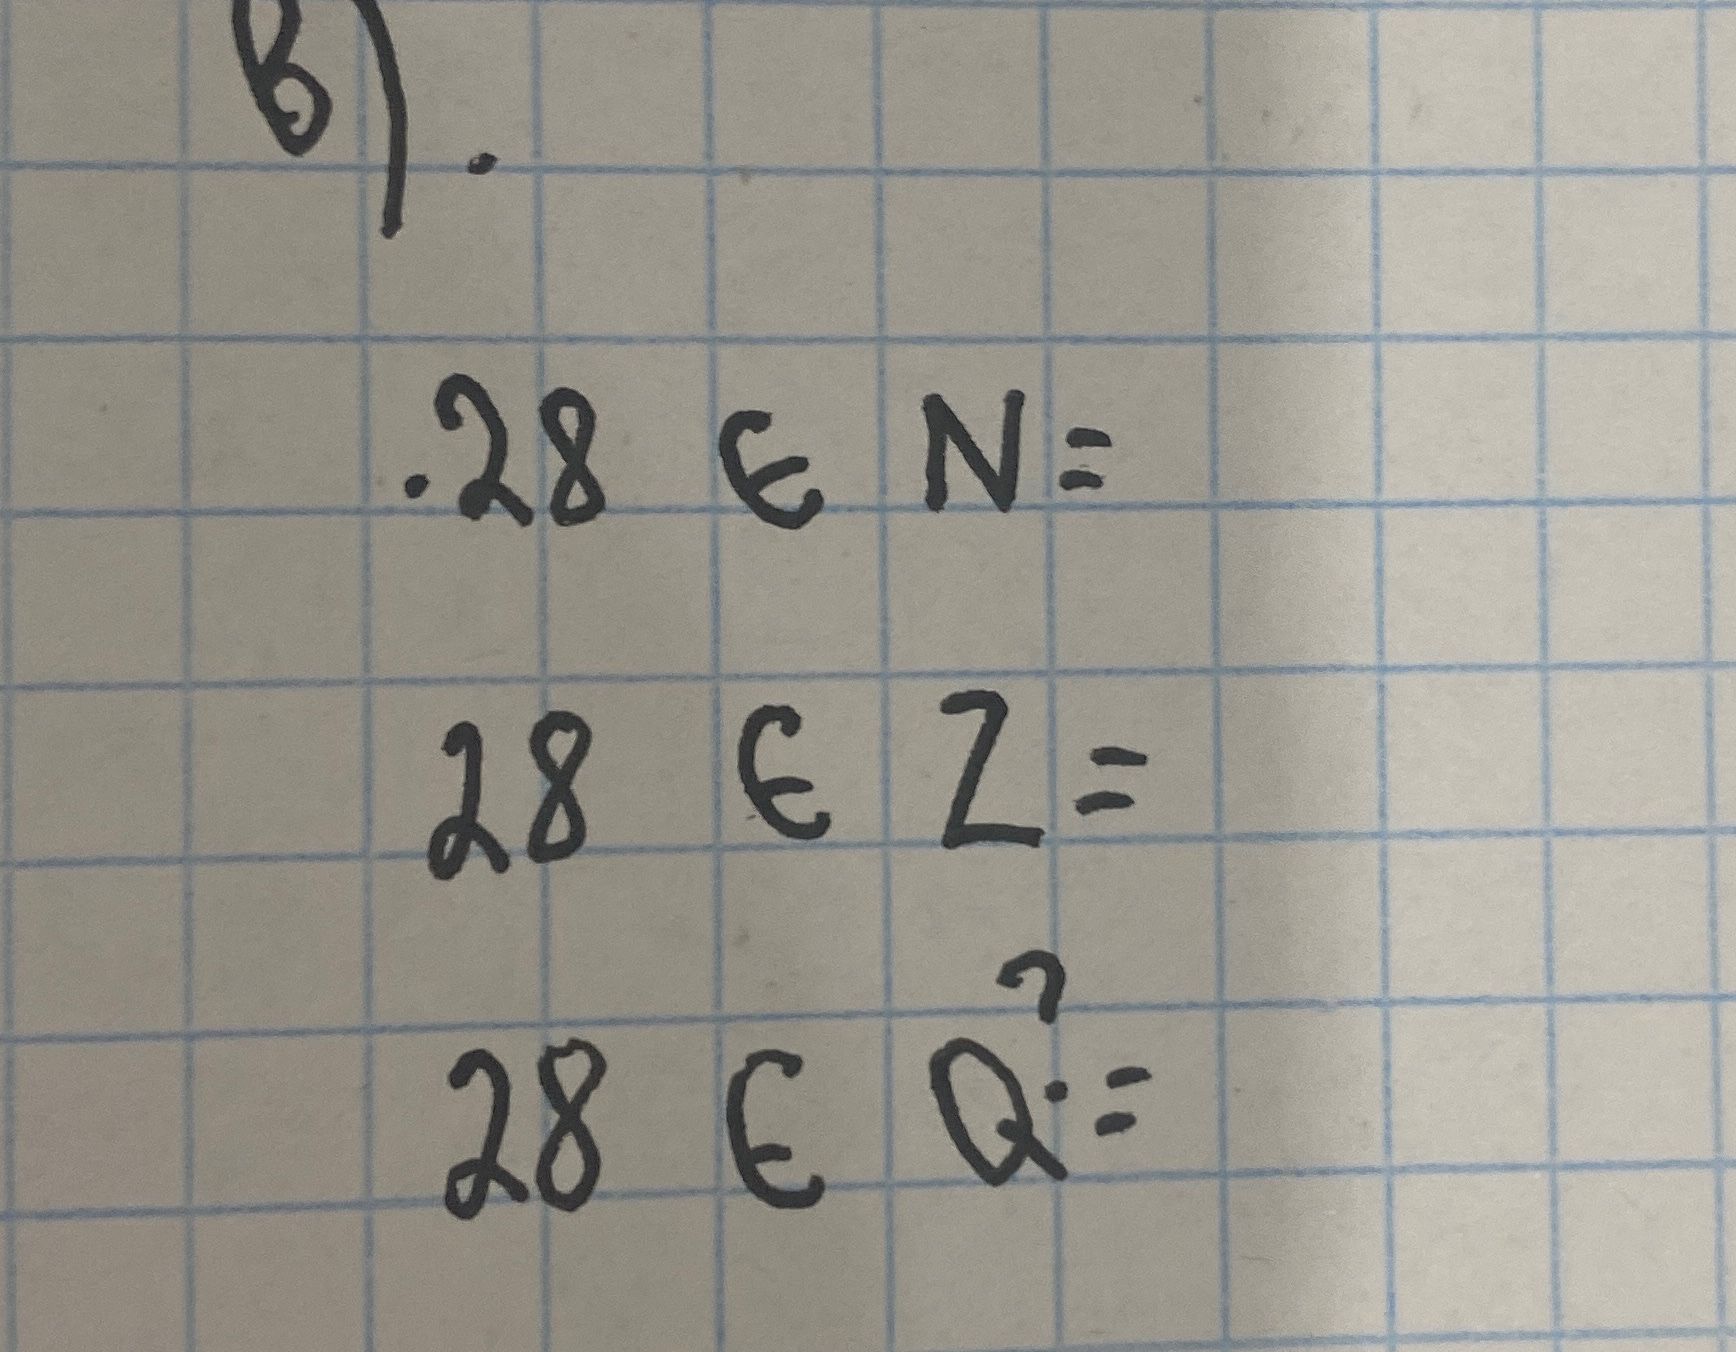 B).
.28 ∈ N=
28 ∈ Z=
28 ∈ Q?=